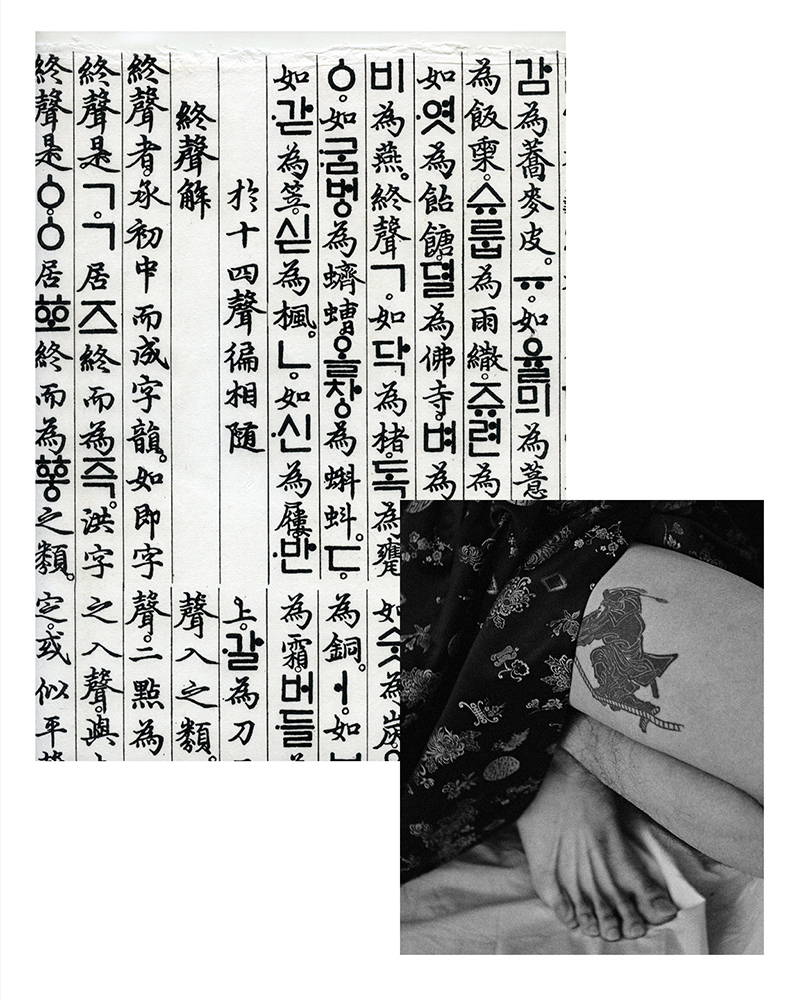 감為蕎麥皮。ㅠ。如율믜為薏
為飯㮚。슈룹為雨繖。쥬련為
如엿為飴餹。뎔為佛寺。벼為
비為燕。終聲ㄱ。如닥為楮。독為甕
ㆁ。如굼버ᇰ為蠐螬。올차ᇰ為蝌蚪。ㄷ。
如갇為笠。싣為楓。ㄴ。如신為屨。반
於十四聲徧相随
終聲解
終聲者。承初中而成字韻。如即字
終聲是ㄱ。ㄱ居즈終而為즉。洪字
終聲是ㆁ。ㆁ居ᅘᅩ終而為ᅘᅩᇰ之類。
如숫為炭
為銅。ㅓ。如
為霜。버들
上。갈為刀
聲入之類。
聲。二點為
之入聲。與
定。或似平